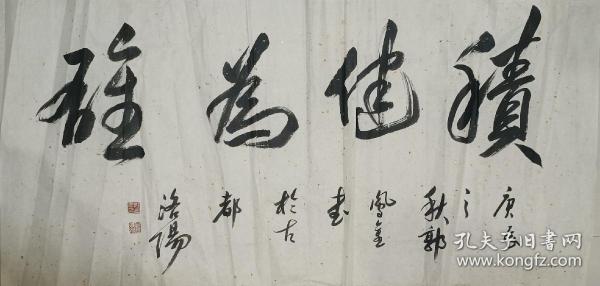 積健為雄
庚
之
秋郭
鳳金
書
於古
都
洛陽
孔夫子旧书网
www.kongfz.com